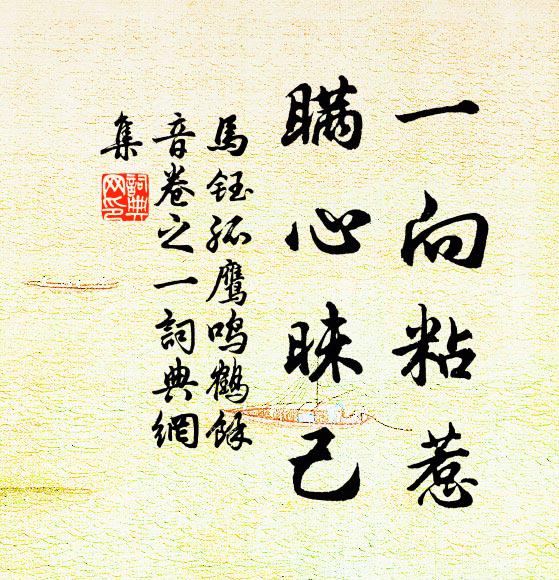 一向粘惹
瞞心昧己
馬鈺孤鷹鳴鶴餘
音卷之一詞典網
集
詞典
网印